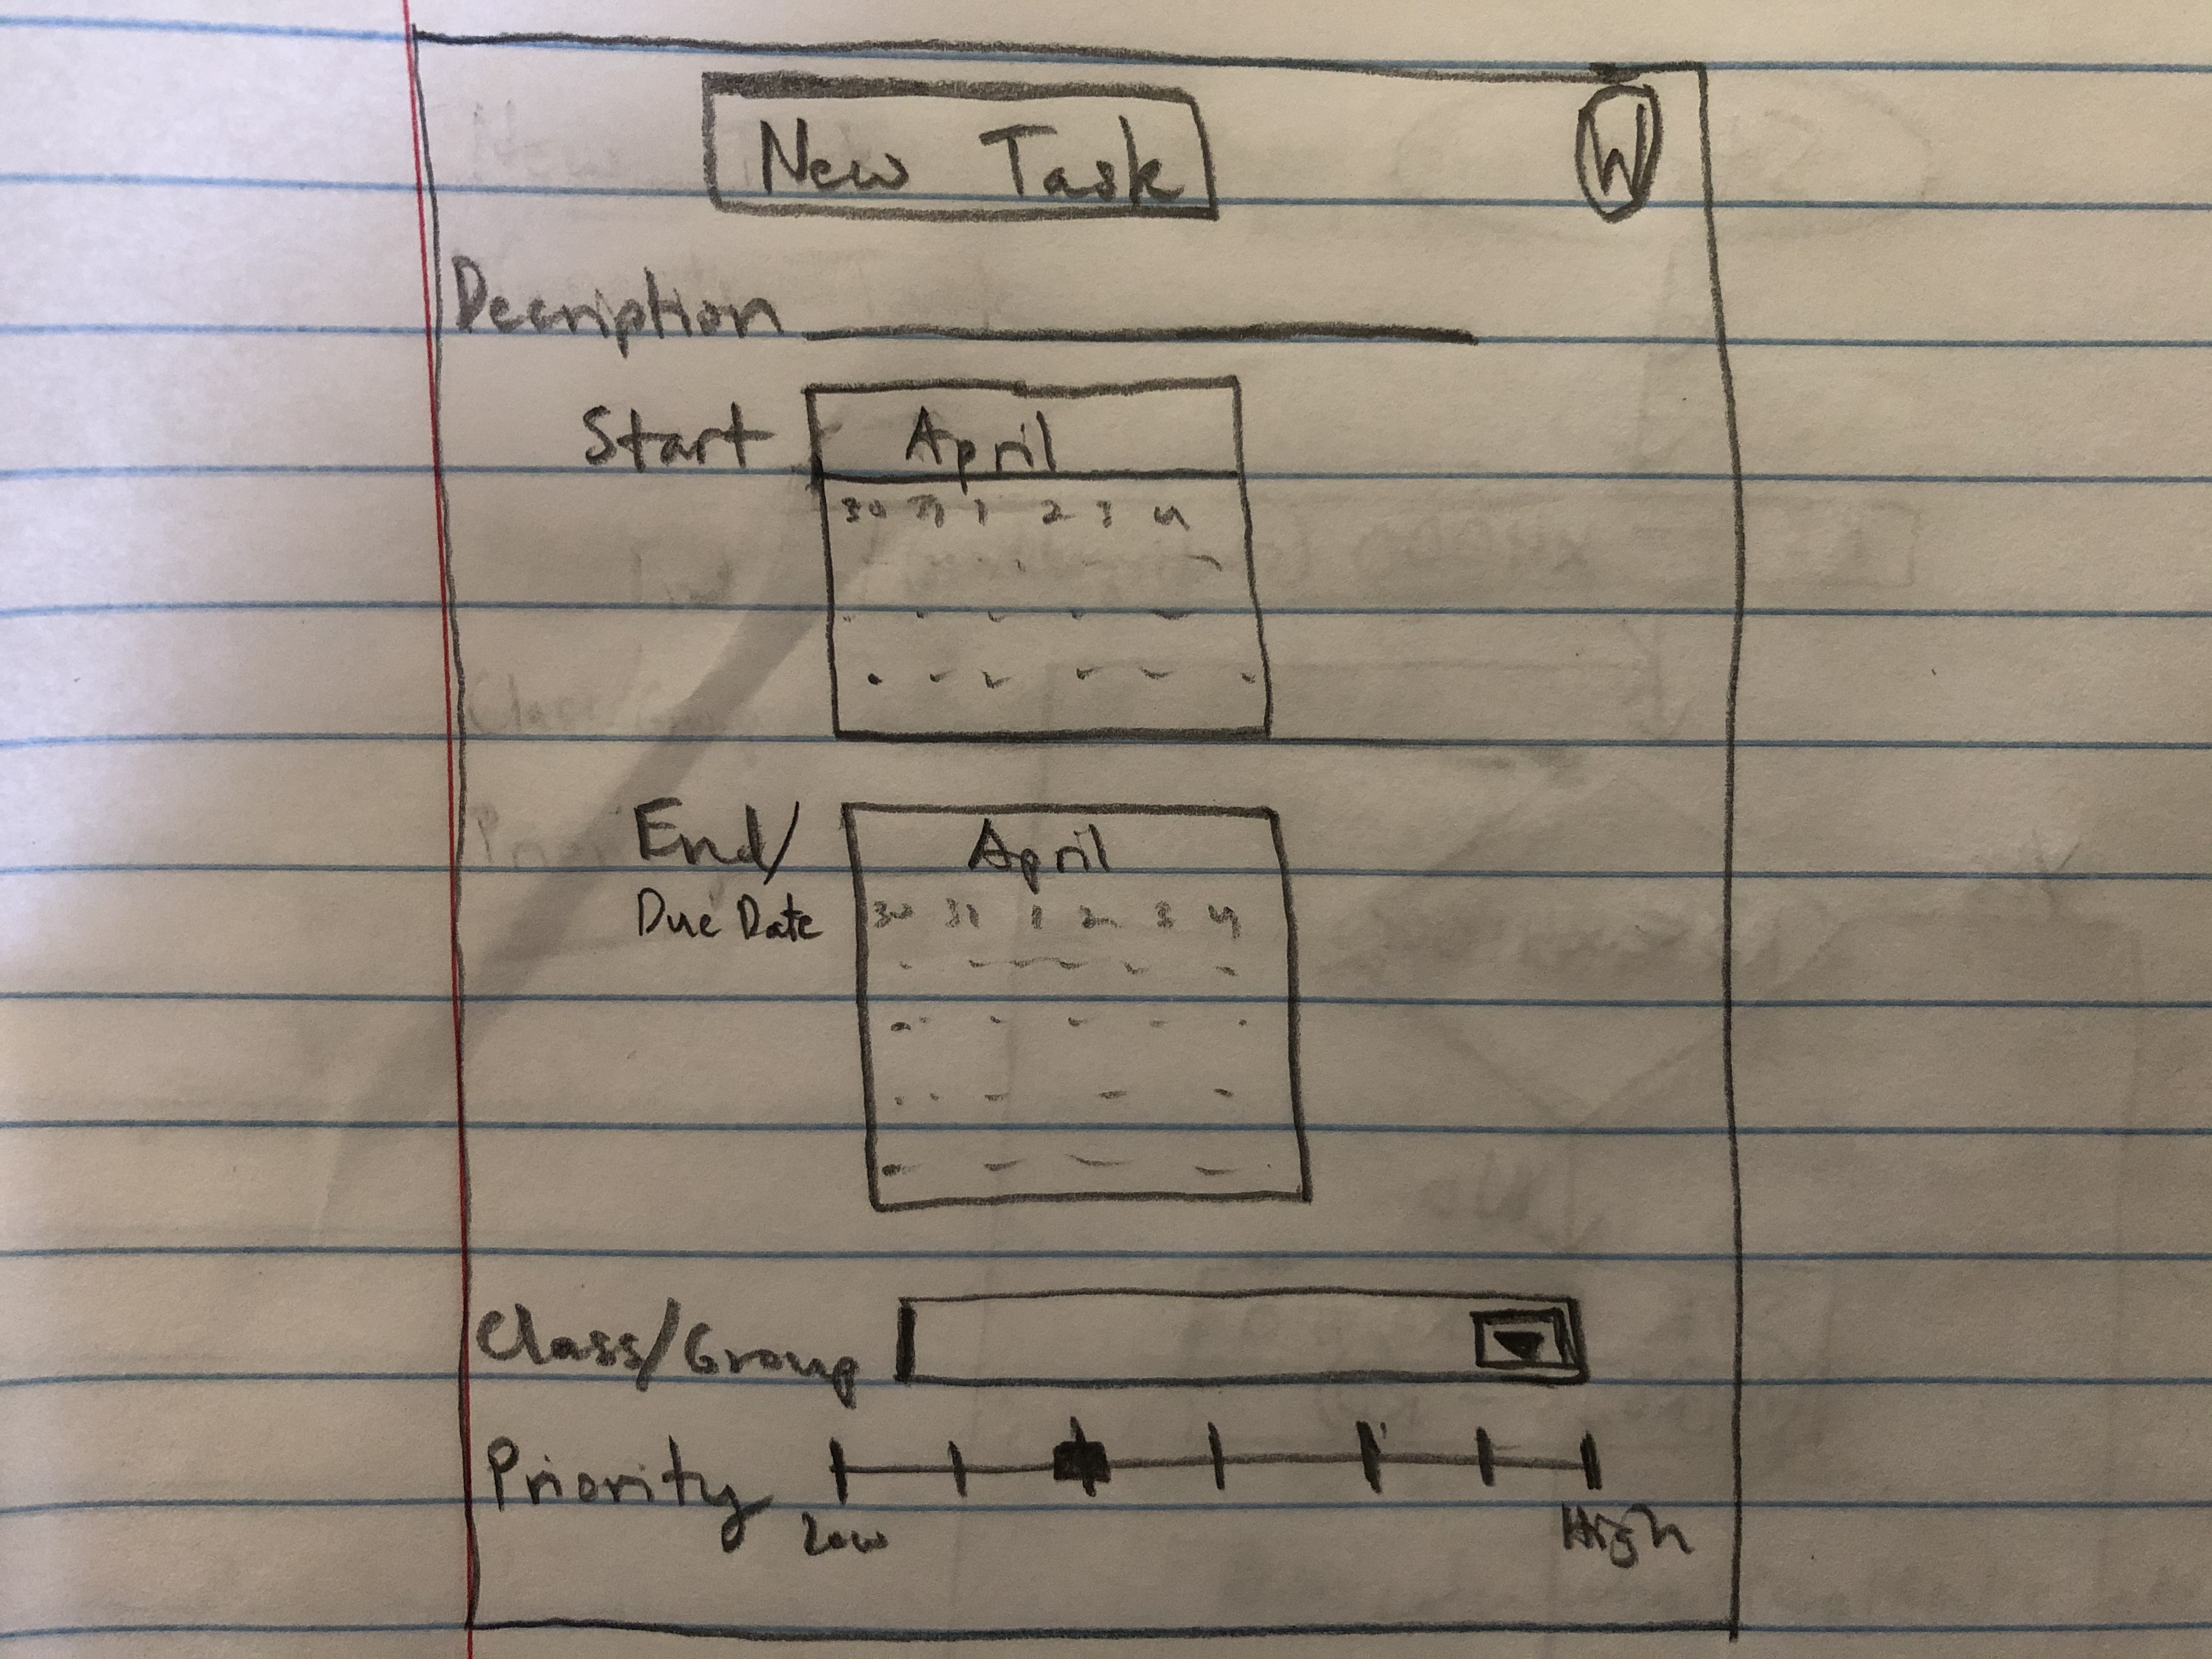 New Task
W
Decription
Start
April
30 31 1 2 3 4
End/
Due Date
April
30 31 1 2 3 4
Class/Group
Priority
Low
High